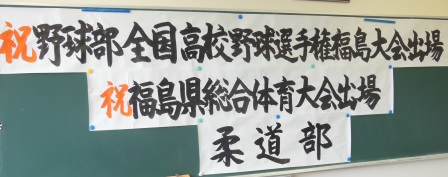 祝野球部全国高校野球選手権福島大会出場
祝福島県総合体育大会出場
柔道部